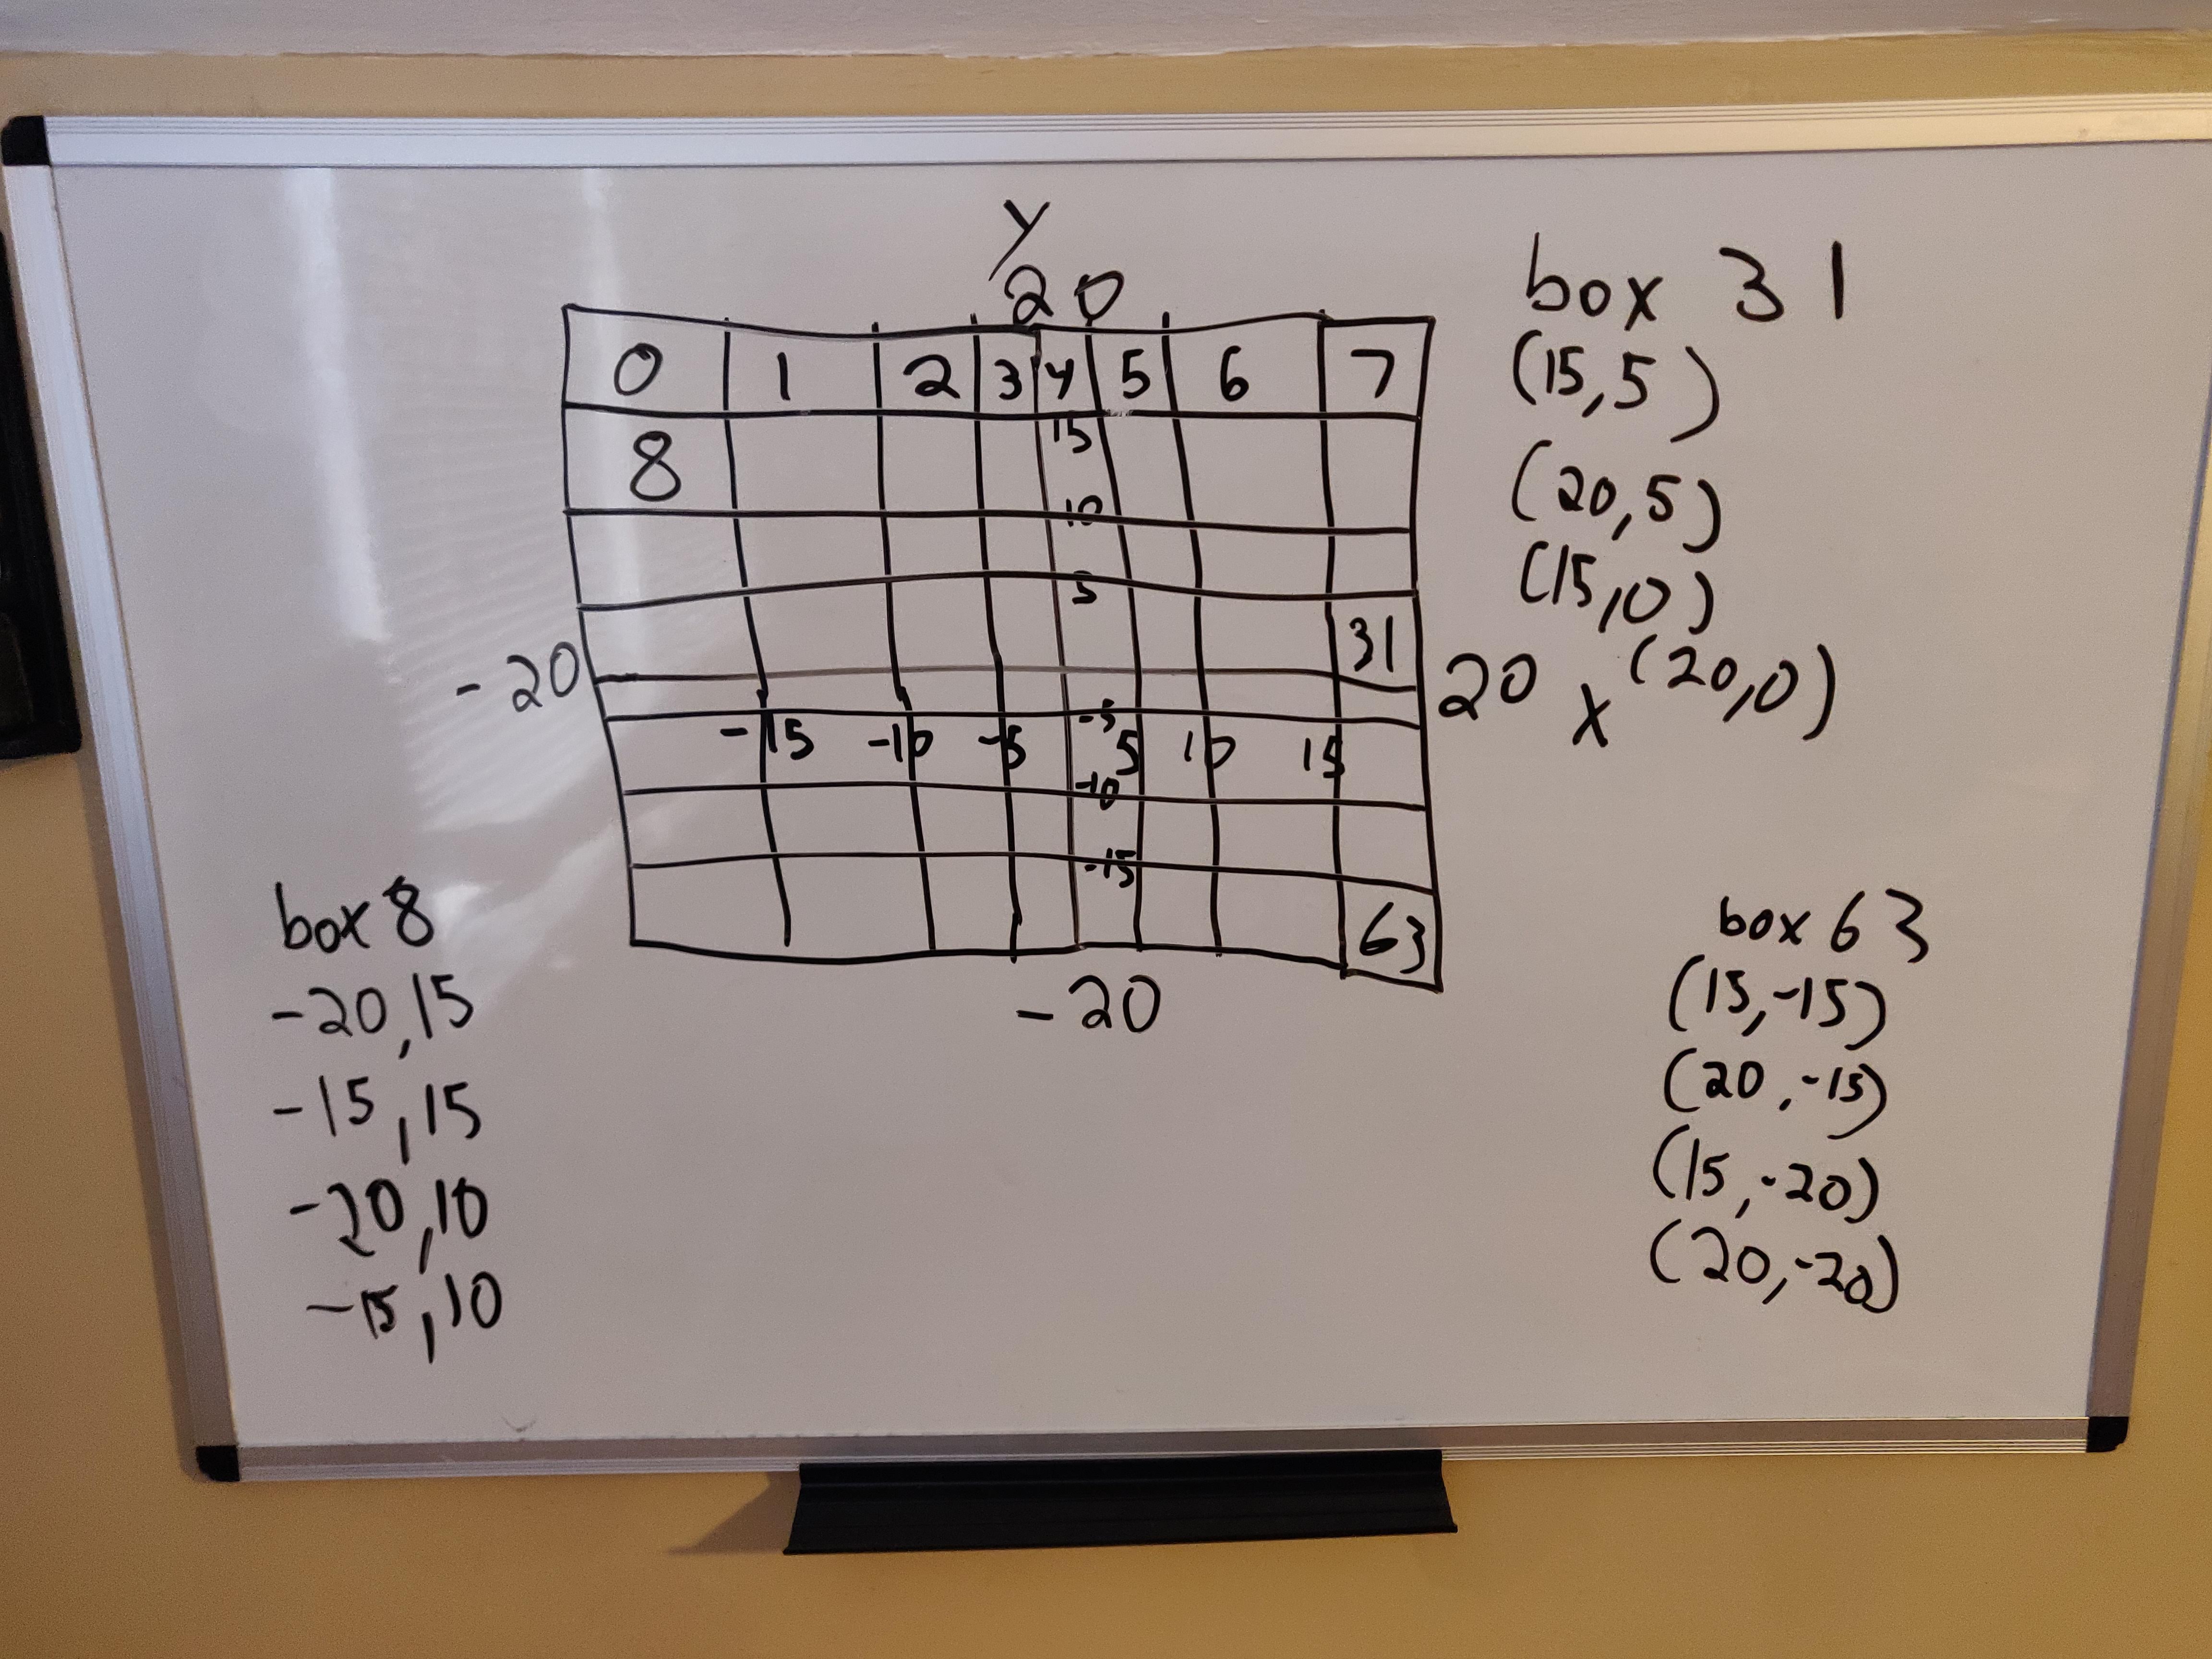 y
20
0 1 2 3 4 5 6 7
8
15
10
5
31
-20
20 x
-5
-15 -10 -5 5 10 15
-10
-15
63
-20
box 31
(15,5)
(20,5)
(15,0)
(20,0)
box 8
-20,15
-15,15
-20,10
-15,10
box 63
(15,-15)
(20,-15)
(15,-20)
(20,-20)